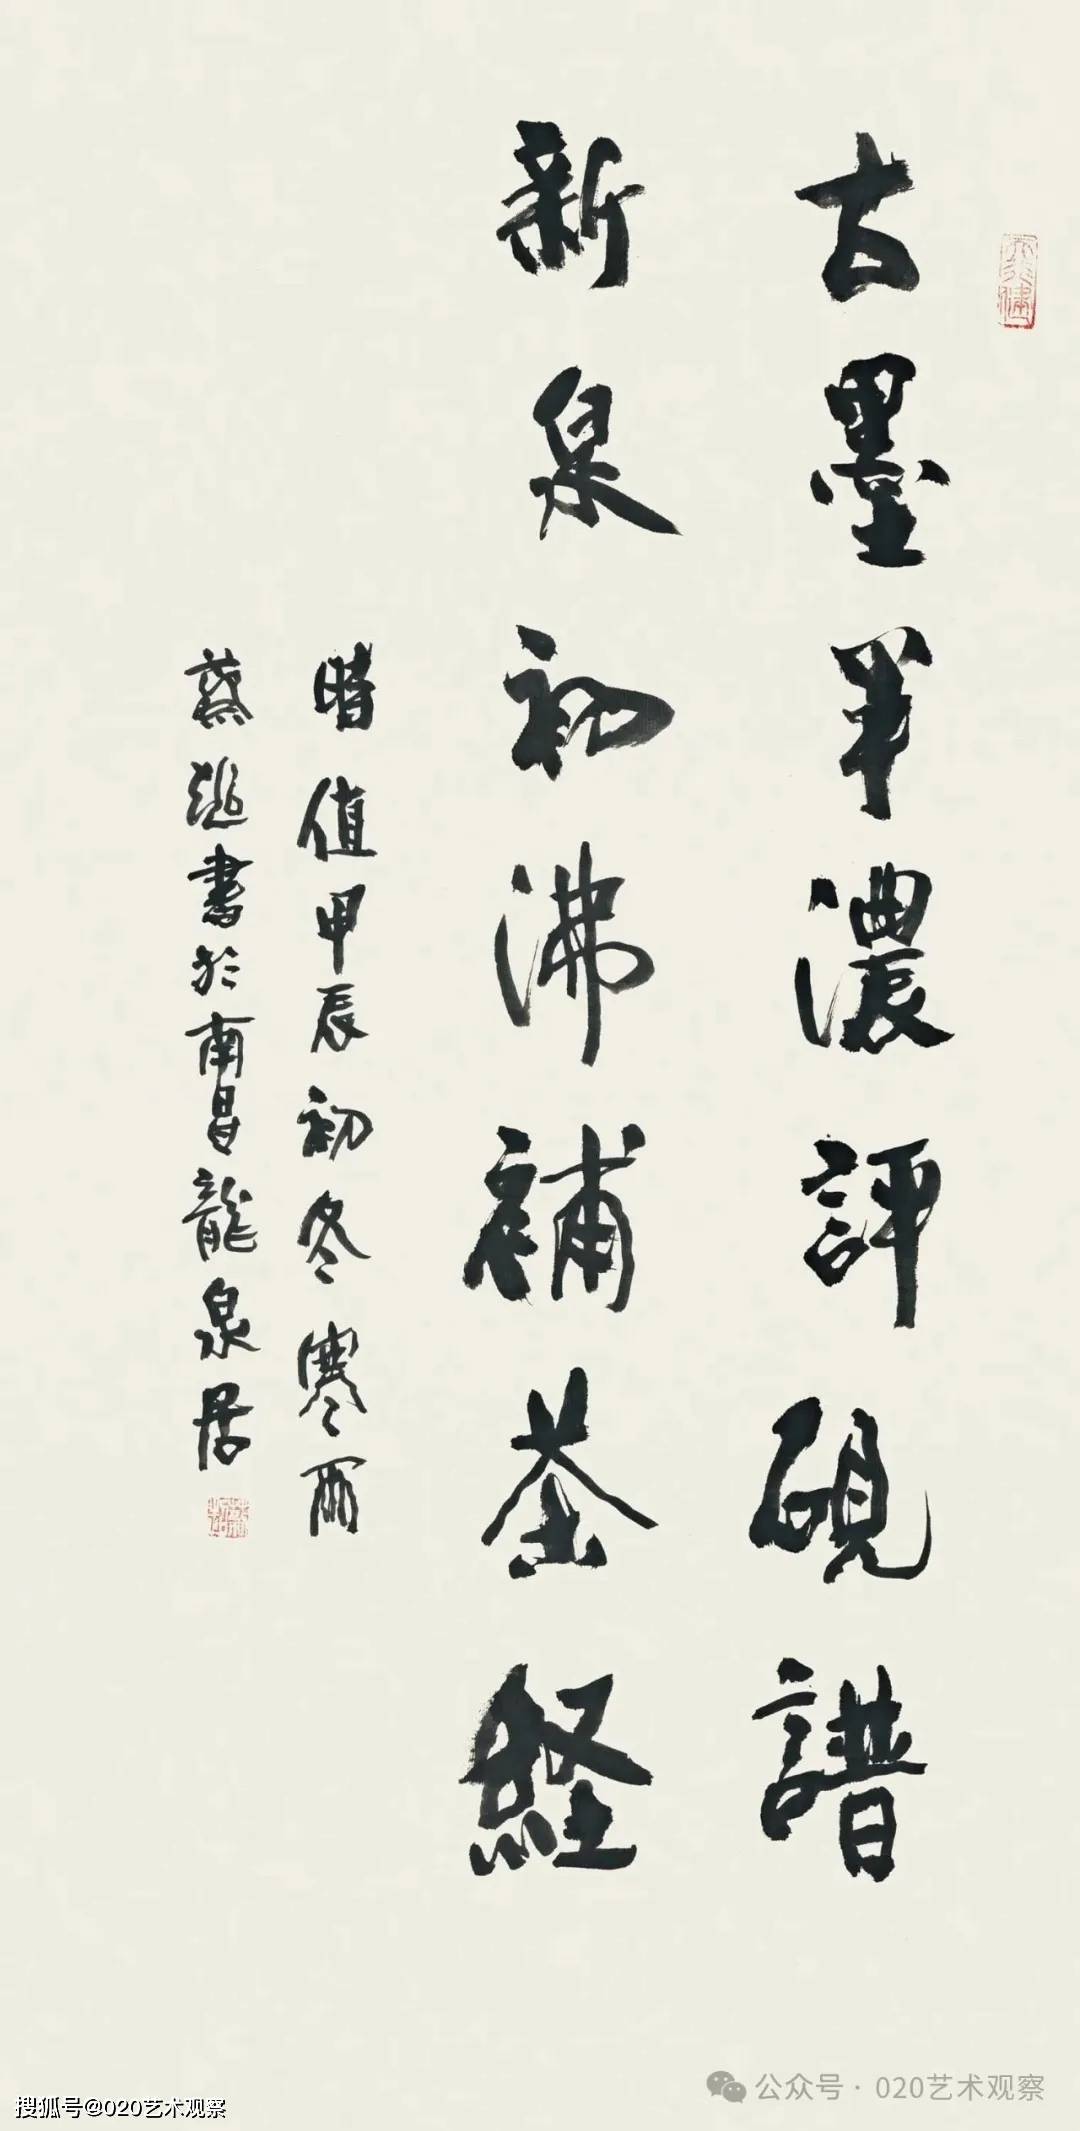 天行健
古墨半濃評硯譜
新泉初沸補茶經
時值甲辰初冬寒雨
蔡超書於南昌龍泉居
公众号·020艺术观察
搜狐号@020艺术观察